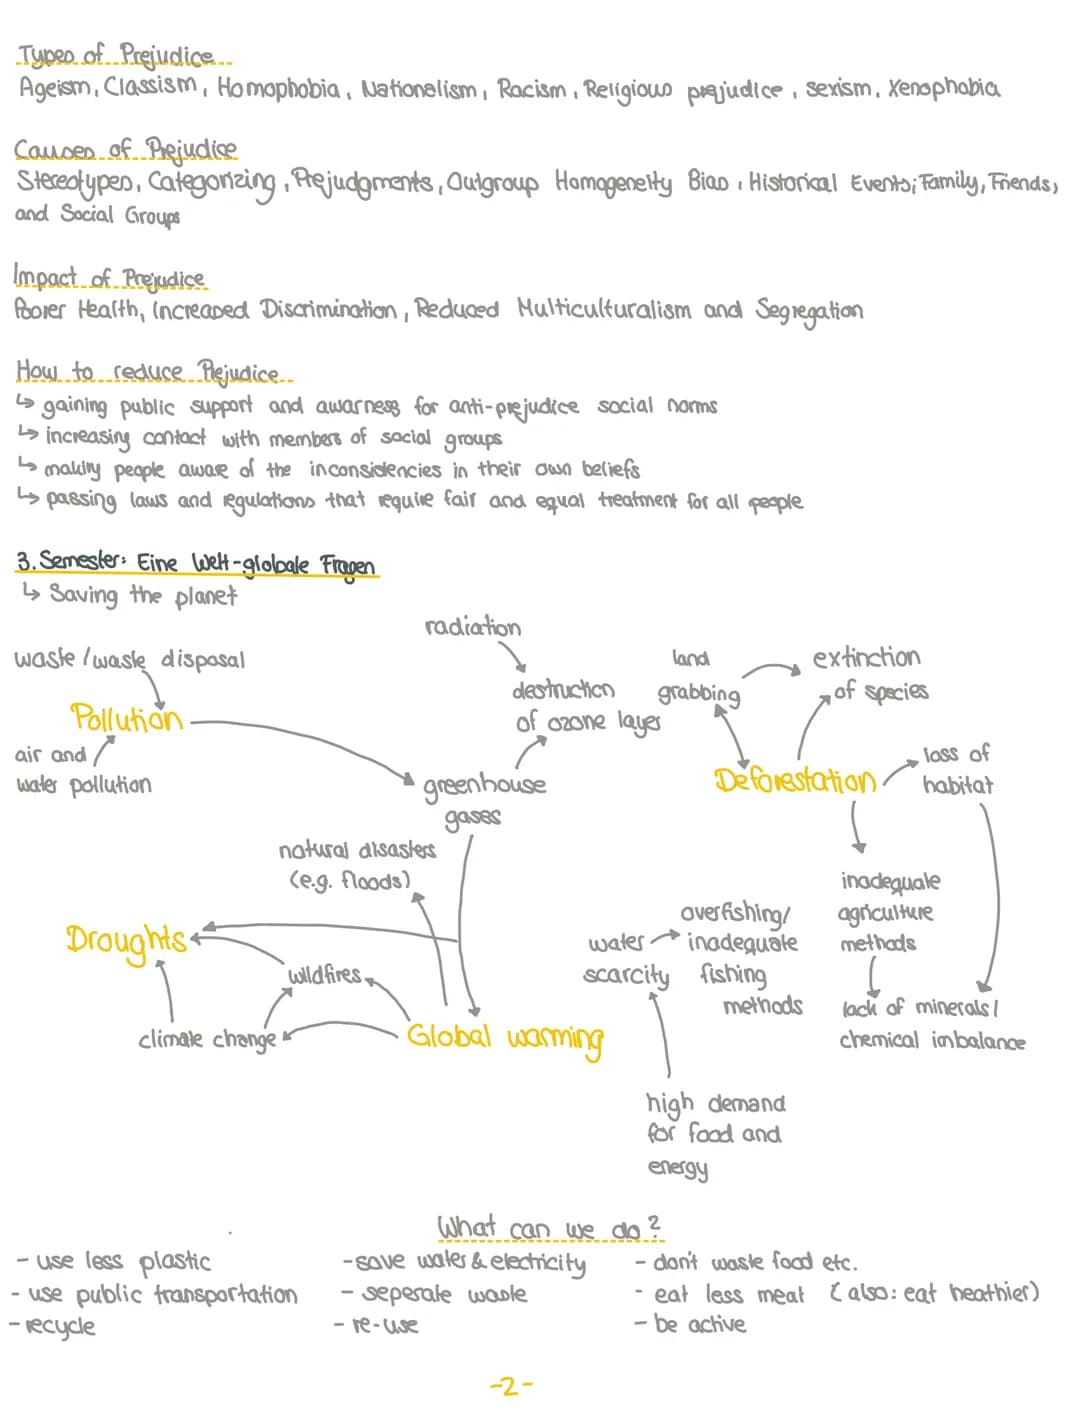 Types of Prejudice
Ageism, Classism, Homophobia, Nationalism, Racism, Religious prejudice, sexism, Xenophobia
Causes of Prejudice
Stereotypes, Categorizing, Prejudgments, Outgroup Homogeneity Bias, Historical Events; Family, Friends,
and Social Groups
Impact of Prejudice
Poorer Health, Increased Discrimination, Reduced Multiculturalism and Segregation
How to reduce Prejudice
↳ gaining public support and awarness for anti-prejudice social norms
↳ increasing contact with members of social groups
↳ making people aware of the inconsistencies in their own beliefs
↳ passing laws and regulations that require fair and equal treatment for all people
3. Semester: Eine Welt-globale Fragen
↳ Saving the planet
radiation
waste / waste disposal
land
grabbing
extinction
of species
destruction
of ozone layer
Pollution
air and
water pollution
greenhouse
gases
Deforestation
loss of
habitat
natural disasters
(e.g. floods)
inadequate
agriculture
methods
Droughts
water
scarcity
overfishing/
inadequate
fishing
methods
wildfires
lack of minerals /
chemical imbalance
climate change
Global warming
high demand
for food and
energy
What can we do?
- use less plastic
- use public transportation
- recycle
- save water & electricity
- seperate waste
- re-use
- don't waste food etc.
- eat less meat (also: eat heathier)
- be active
-2-